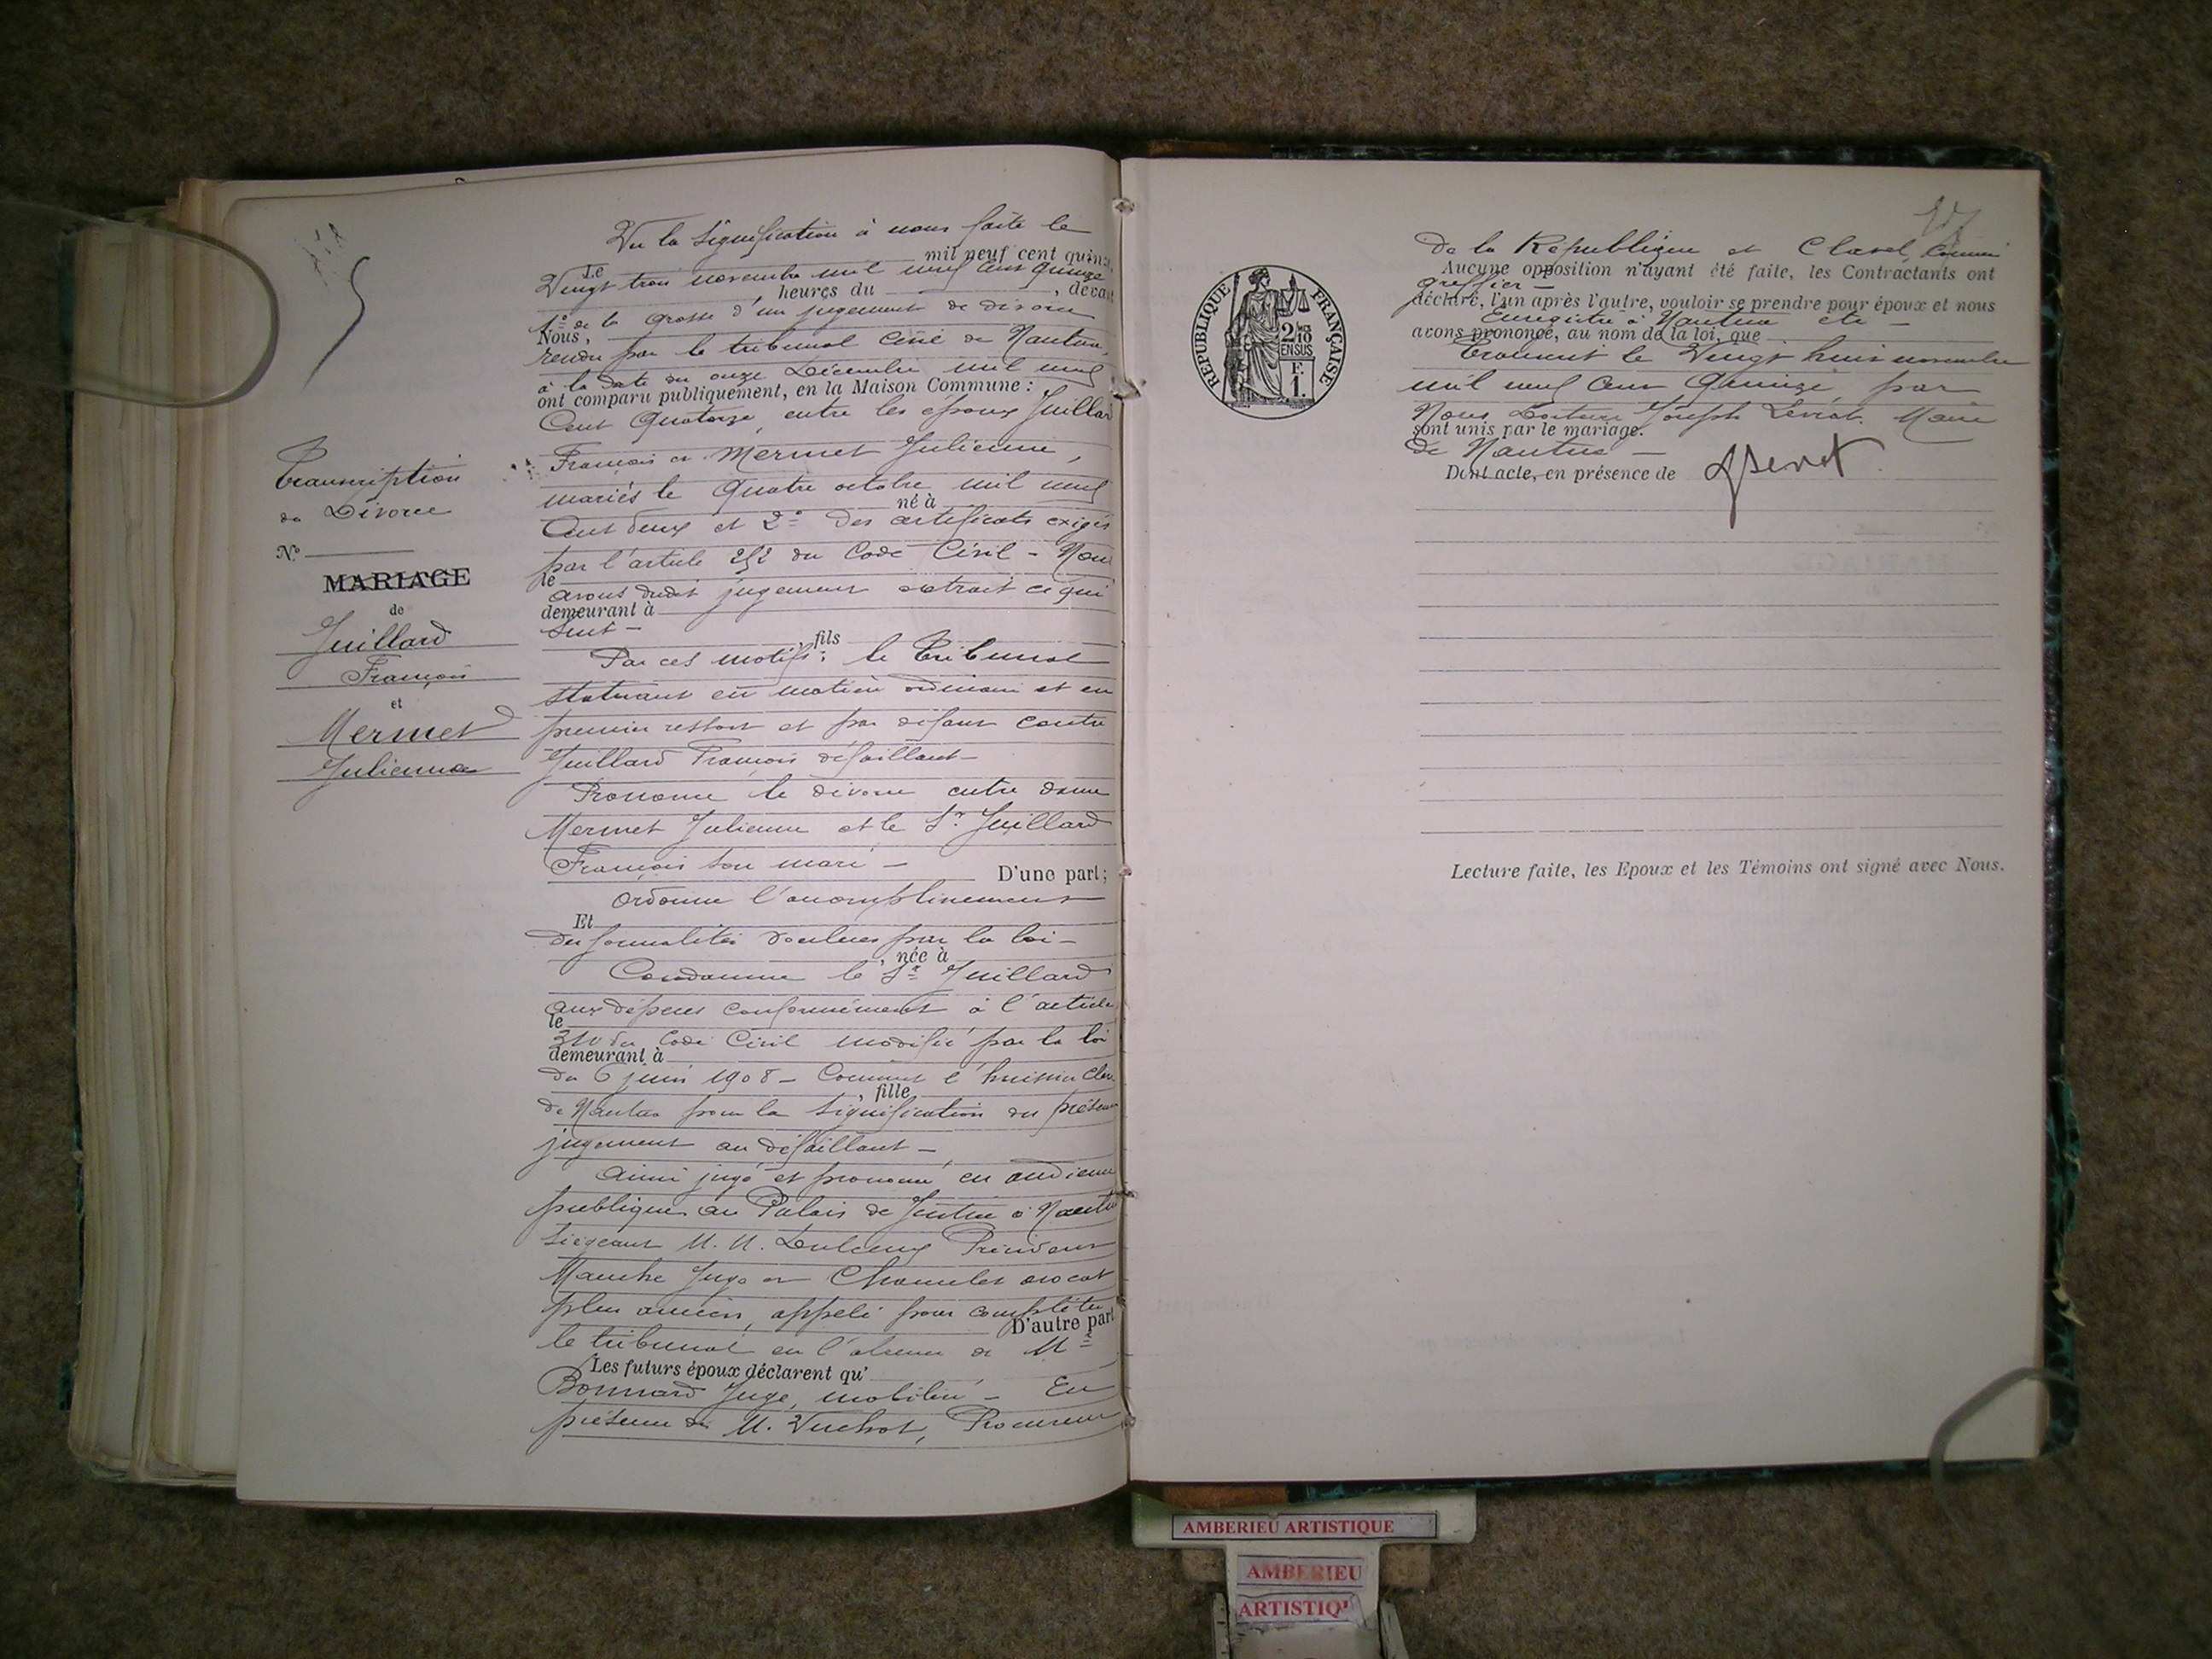 Vu la Signification à nous faite le
Le mil neuf cent quinze,
Vingt trois novembre mil neuf cent quinze
heures du , devant
1º de la grosse d'un jugement de divorce
Nous,
rendu par le tribunal Civil de Nantua,
à la date du onze Décembre mil neuf
ont comparu publiquement, en la Maison Commune :
Cent Quatorze, entre les époux Juillard
François et Mermet Julienne,
mariés le Quatre octobre mil neuf
né à
Cent deux et 2º des certificats exigés
par l'article 252 du Code Civil - Nous
le
avons dudit jugement extrait ce qui
demeurant à
suit -
, fils
Par ces motifs : le Tribunal
statuant en matière ordinaire et en
premier ressort et par défaut contre
Juillard François défaillant -
Prononce le divorce entre dame
Mermet Julienne et le Sr. Juillard
François son mari -
D'une part ;
Ordonne l'accomplissement
Et
des formalités voulues par la loi -
, née à
Condamne le Sr Juillard
aux dépens conformément à l'article
le
310 du Code Civil modifié par la loi
demeurant à
du 6 juin 1908 - Commet l'huissier
, fille
de Nantua pour la signification du présent
jugement au défaillant -
Ainsi jugé et prononcé en audience
publique au Palais de Justice à Nantua
Siégeant M. M. Président
Juge et avocat
plus ancien, appelé pour compléter
D'autre part
le tribunal en l'absence de Mr
Les futurs époux déclarent qu'
Bonnard Juge, mobilisé - En
présence de M. Vuchot, Procureur
Transcription
du Divorce
Nº
MARIAGE
de
Juillard
François
et
Mermet
Julienne
REPUBLIQUE FRANÇAISE
2/10
EN SUS
F.
1.
de la République et Clavel, Commis
Aucune opposition n'ayant été faite, les Contractants ont
greffier -
déclaré, l'un après l'autre, vouloir se prendre pour époux et nous
Enregistré à Nantua etc -
avons prononcé, au nom de la loi, que
Transcrit le Vingt huit novembre
mil neuf cent Quinze par
Nous Docteur Joseph Levrat Maire
sont unis par le mariage.
de Nantua -
Dont acte, en présence de
Lecture faite, les Epoux et les Témoins ont signé avec Nous.
AMBERIEU ARTISTIQUE
AMBERIEU
ARTISTIQ